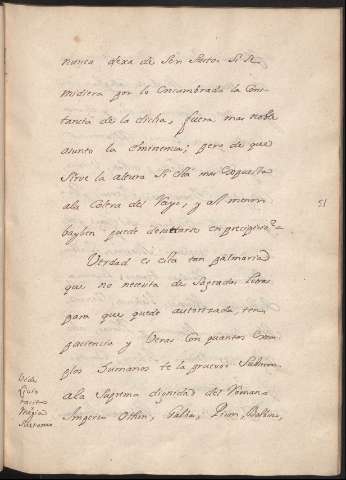 nunca dexa de ser Suerte. Si se
midiera por lo encumbrado la Cons-
tancia de la dicha, fuera mas noble
asunto la eminencia; pero de que
sirve la altura si está mas expuesta
ala Colera del Rayo, y al menor
bayben puede desatarse en precipicio?
51
Verdad es esta tan palmaria
que no necesita de Sagradas Letras
para que quede autorizada, ten
paciencia y veras con quantos exem
plos humanos te la pruevo: Subieron
ala Suprema dignidad del Romano
Imperio Othon, Galba, Pison, Balbino,
Livio
Tacito